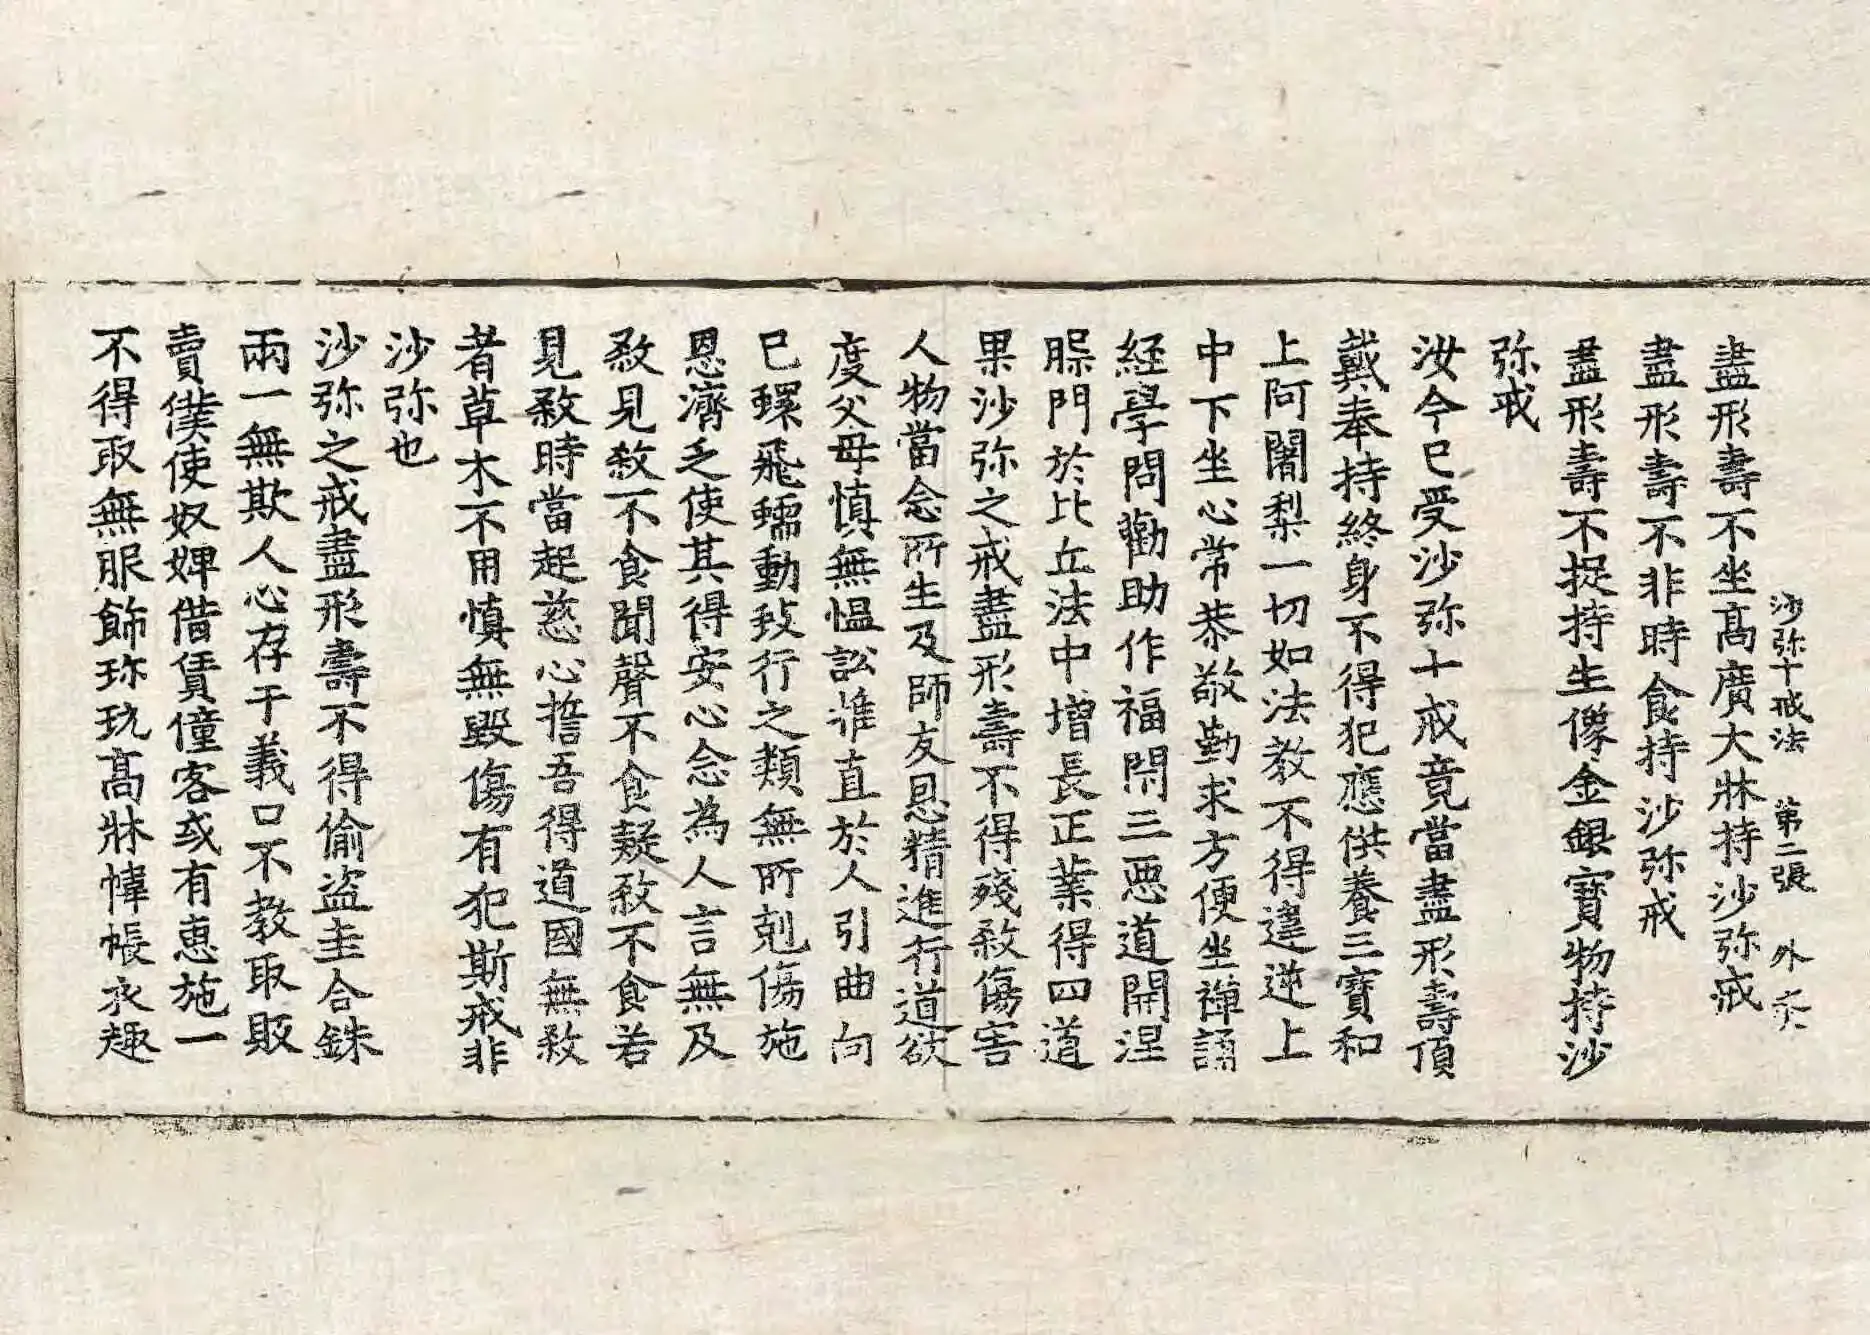 沙弥十戒法　第二張　外
盡形壽不坐髙廣大牀持沙弥戒
盡形壽不非時食持沙弥戒
盡形壽不捉持生像金銀寶物持沙
弥戒
汝今已受沙弥十戒竟當盡形壽頂
戴奉持終身不得犯應供養三寶和
上阿闍梨一切如法教不得違逆上
中下坐心常恭敬勤求方便坐禪誦
經學問勸助作福閇三惡道開涅
脲門於比丘法中增長正業得四道
果沙弥之戒盡形壽不得殘殺傷害
人物當念所生及師友恩精進行道欲
度父母慎無愠訟推直於人引曲向
已蠉飛蠕動跂行之類無所剋傷施
恩濟乏使其得安心念為人言無及
殺見殺不食聞聲不食疑殺不食若
見殺時當起慈心誓吾得道國無殺
者草木不用慎無毀傷有犯斯戒非
沙弥也
沙弥之戒盡形壽不得偷盜圭合銖
兩一無欺人心存于義口不教取販
賣僕使奴婢借賃僮客或有惠施一
不得取無服飾珎玩髙牀幃帳衣趣